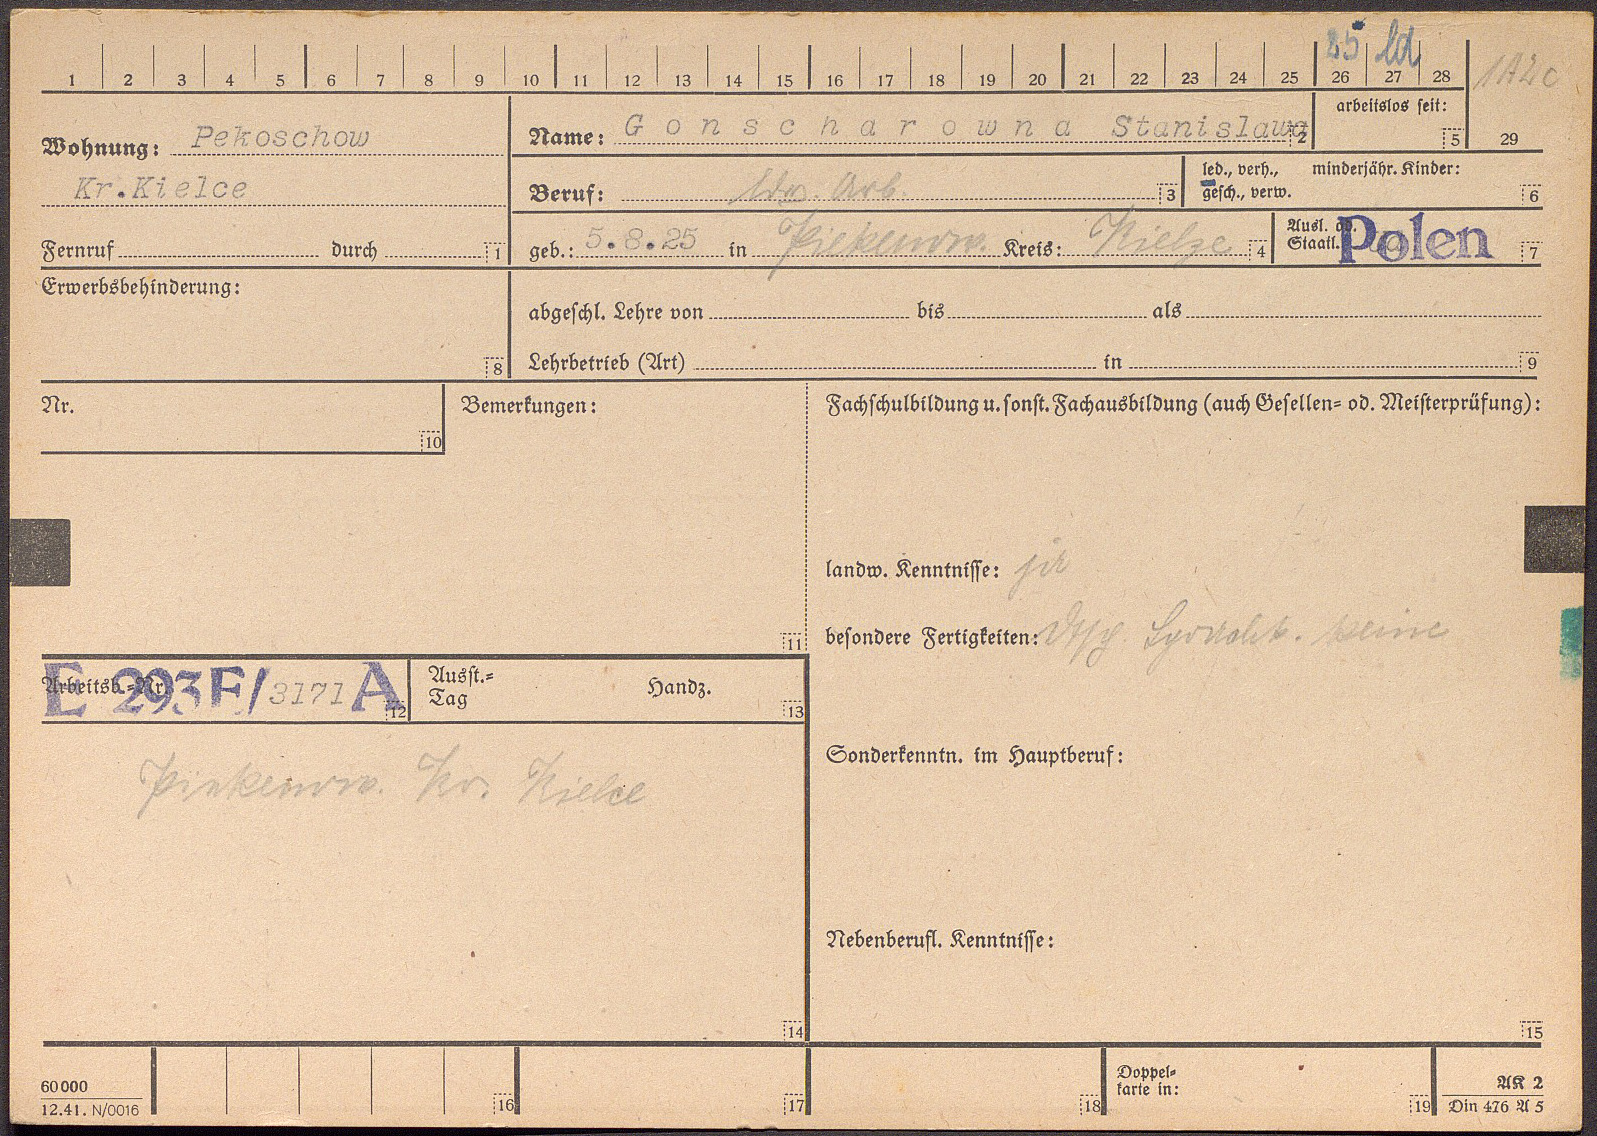 25 ld
1A2c
1 2 3 4 5 6 7 8 9 10 11 12 13 14 15 16 17 18 19 20 21 22 23 24 25 26 27 28
29
Wohnung: Pekoschow
Kr.Kielce
Fernruf durch 1
Name: Gonscharowna Stanislawa 2
arbeitslos seit: 5
Beruf: ldw. Arb. 3
led., verh., minderjähr. Kinder:
gesch., verw. 6
geb.: 5.8.25 in Kreis: Kielze 4
Ausl. od.
Staatl. Polen 7
Erwerbsbehinderung:
8
abgeschl. Lehre von bis als
Lehrbetrieb (Art) in 9
Nr.
10
Bemerkungen:
11
Fachschulbildung u. sonst. Fachausbildung (auch Gesellen- od. Meisterprüfung):
landw. Kenntnisse: ja
besondere Fertigkeiten: Dtsch. Sprachk. keine
Arbeitsb.-Nr. E 293F/3171 A 12
Ausst.-
Tag Handz. 13
Kr. Kielce
Sonderkenntn. im Hauptberuf:
Nebenberufl. Kenntnisse:
14
15
60000
12.41. N/0016
16
17
18
Doppel-
karte in: 19
AK 2
Din 476 A 5